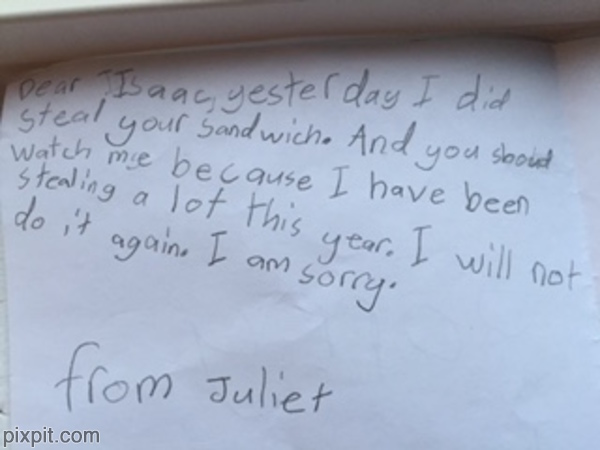 Dear Isaac, yesterday I did
steal your sandwich. And you should
watch me because I have been
stealing a lot this year. I will not
do it again. I am sorry.
from Juliet
pixpit.com